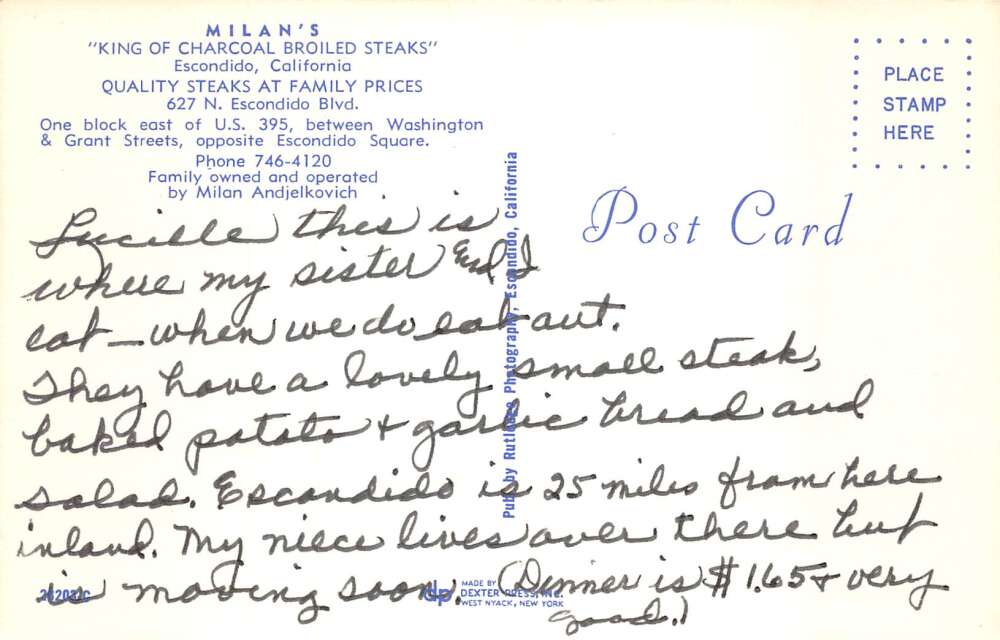 MILAN'S
"KING OF CHARCOAL BROILED STEAKS"
Escondido, California
QUALITY STEAKS AT FAMILY PRICES
627 N. Escondido Blvd.
One block east of U.S. 395, between Washington
& Grant Streets, opposite Escondido Square.
Phone 746-4120
Family owned and operated
by Milan Andjelkovich
PLACE
STAMP
HERE
Post Card
Pub. by Rutledges Photography, Escondido, California
Lucille this is
where my sister and I
eat — when we do eat out.
They have a lovely small steak,
baked potato + garlic bread and
salad. Escondido is 25 miles from here
inland. My niece lives over there but
is moving soon. (Dinner is $1.65 + very
good.)
dp
MADE BY
DEXTER PRESS, INC.
WEST NYACK, NEW YORK